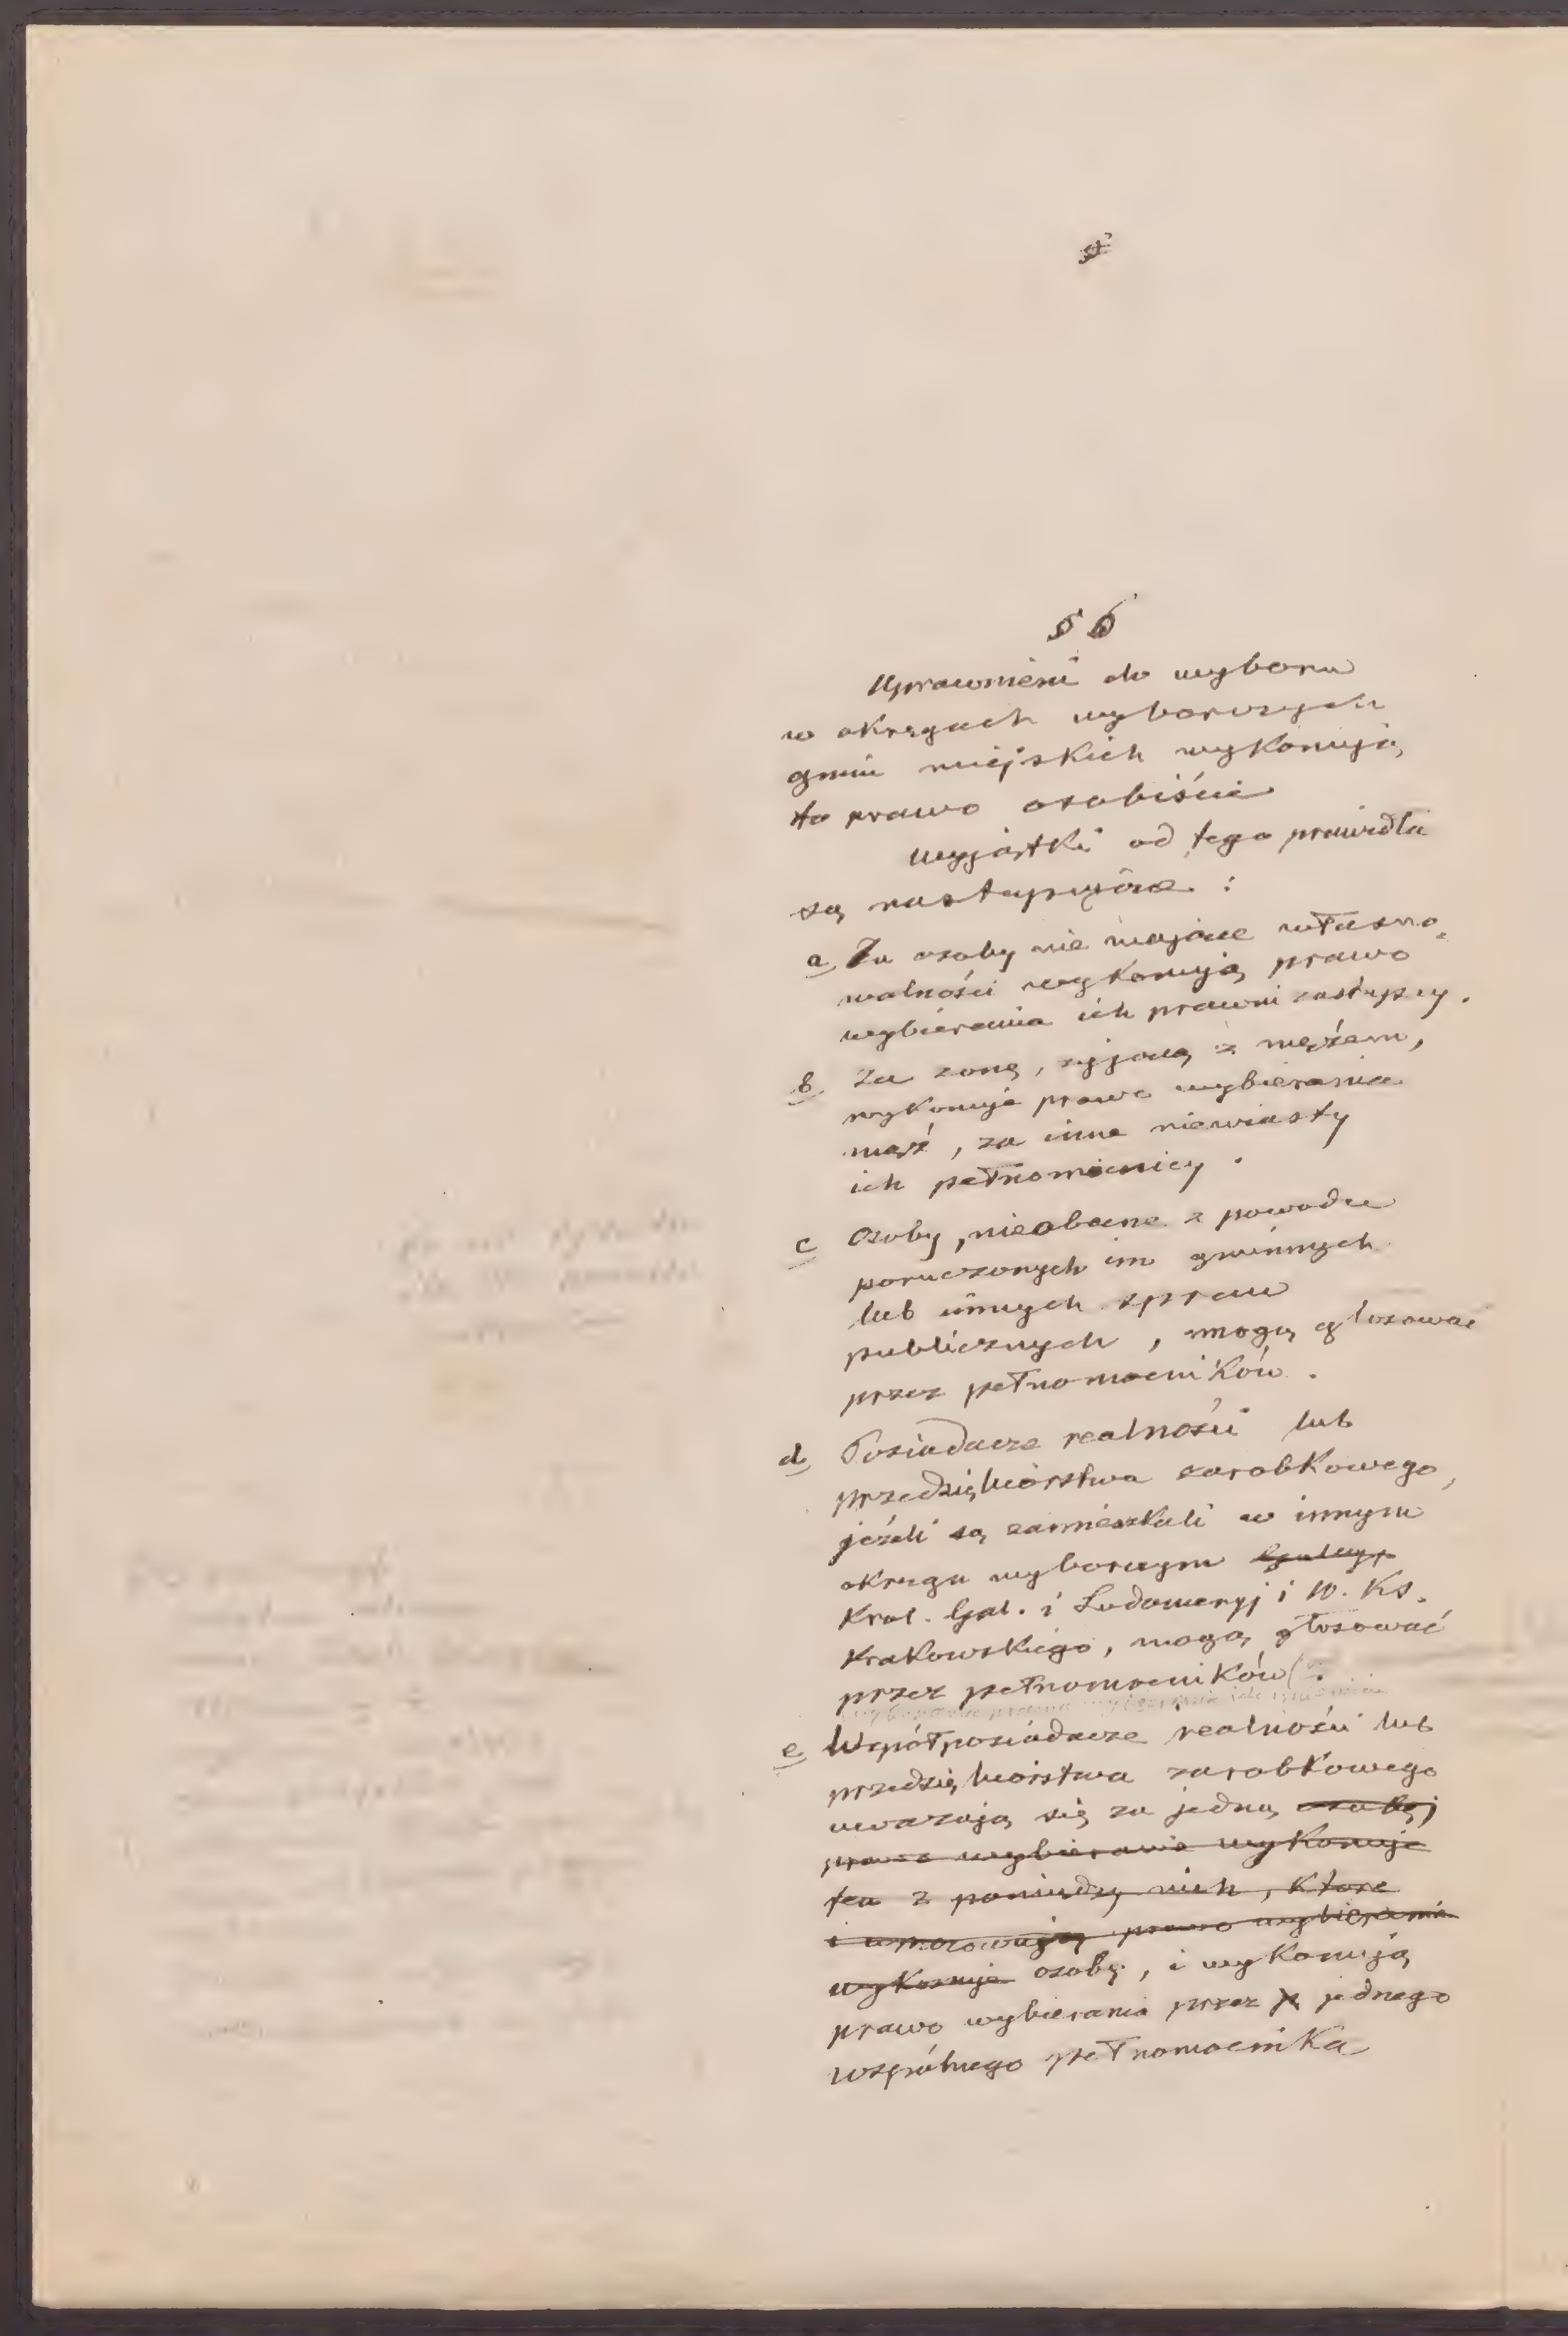 § 6
Uprawnieni do wyboru
w okręgach wyborczych
gmin miejskich wykonują
to prawo osobiście
wyjątki od tego prawidła
są następujące :
a Za osoby nie mające własno-
walności wykonują prawo
wybierania ich prawni zastępcy .
b Za żonę, żyjącą z mężem,
wykonuje prawo wybierania
mąż , za inne niewiasty
ich pełnomocnicy .
c Osoby , nieobecne z powodu
poruczonych im gminnych
lub innych spraw
publicznych , mogą głosować
przez pełnomocników .
d Posiadacze realności lub
przedsiębiorstwa zarobkowego,
jeżeli są zamieszkali w innym
okręgu wyborczym
Krol. Gal. i Lodomeryj i W. Ks.
Krakowskiego, mogą głosować
przez pełnomocników .
e Współposiadacze realności lub
przedsiębiorstwa zarobkowego
uważają się za jedną osobę ;
prawo wybierania wykonuje
ten z pomiędzy nich , które
i upoważniają prawo wybierania
wykonuje osobę , i wykonują
prawo wybierania przez jednego
wspólnego pełnomocnika